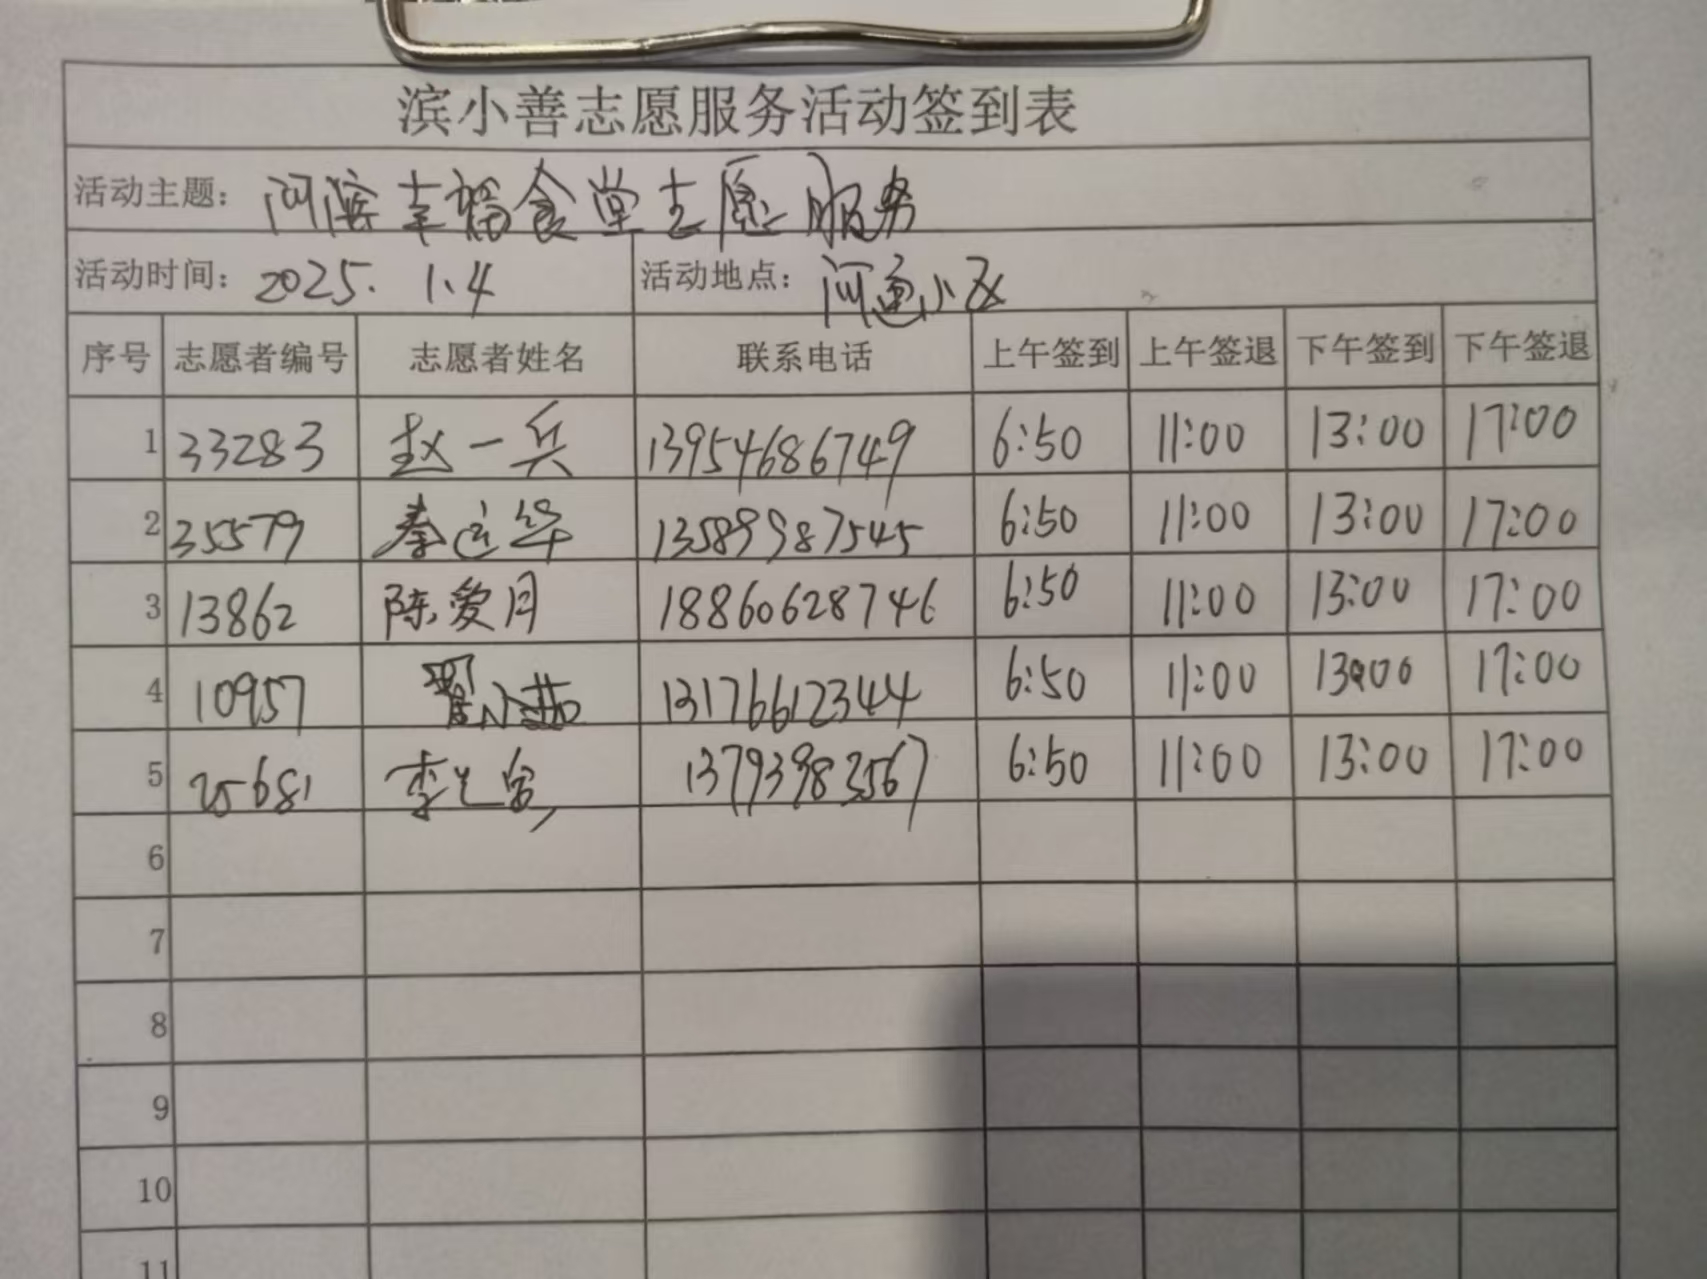 滨小善志愿服务活动签到表
活动主题: 河滨幸福食堂志愿服务
活动时间: 2025.1.4 活动地点: 河通小区
序号 志愿者编号 志愿者姓名 联系电话 上午签到 上午签退 下午签到 下午签退
1 33283 赵一兵 13954686749 6:50 11:00 13:00 17:00
2 35579 秦运华 13589987545 6:50 11:00 13:00 17:00
3 13862 陈爱月 18860628746 6:50 11:00 13:00 17:00
4 10957 翟小燕 13176612344 6:50 11:00 13:00 17:00
5 25681 李 13793983567 6:50 11:00 13:00 17:00
6
7
8
9
10
11